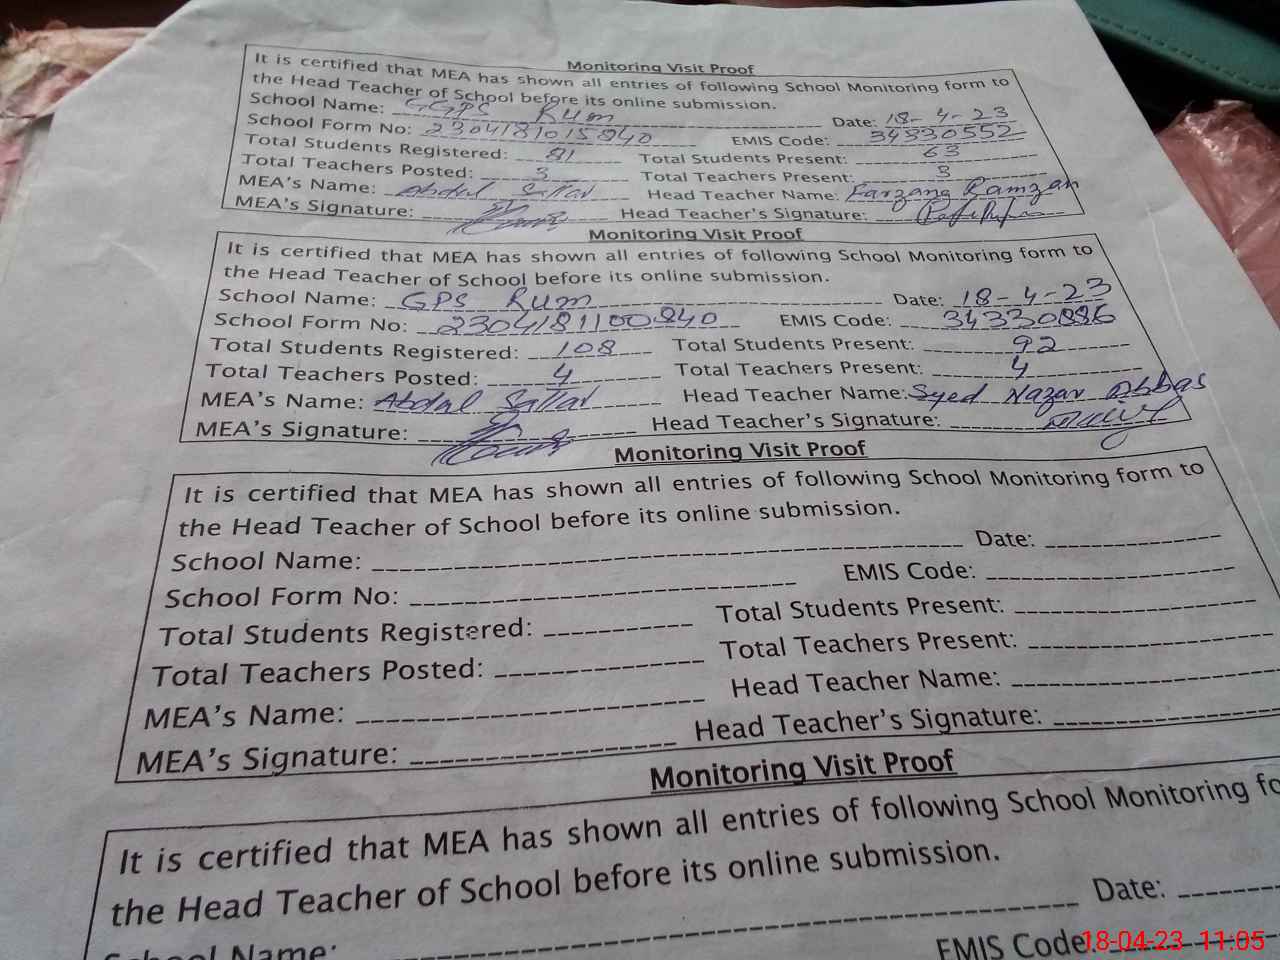 Monitoring Visit Proof
It is certified that MEA has shown all entries of following School Monitoring form to
the Head Teacher of School before its online submission.
School Name: GGPS Rum Date: 18-4-23
School Form No: 2304181015840 EMIS Code: 34330552
Total Students Registered: 81 Total Students Present: 63
Total Teachers Posted: 3 Total Teachers Present: 3
MEA's Name: Abdul Sattar Head Teacher Name: Farzana Ramzan
MEA's Signature: Head Teacher's Signature:
Monitoring Visit Proof
It is certified that MEA has shown all entries of following School Monitoring form to
the Head Teacher of School before its online submission.
School Name: GPS Rum Date: 18-4-23
School Form No: 2304181100840 EMIS Code: 34330886
Total Students Registered: 108 Total Students Present: 92
Total Teachers Posted: 4 Total Teachers Present: 4
MEA's Name: Abdul Sattar Head Teacher Name: Syed Nazar Abbas
MEA's Signature: Head Teacher's Signature:
Monitoring Visit Proof
It is certified that MEA has shown all entries of following School Monitoring form to
the Head Teacher of School before its online submission.
School Name: Date:
School Form No: EMIS Code:
Total Students Registered: Total Students Present:
Total Teachers Posted: Total Teachers Present:
MEA's Name: Head Teacher Name:
MEA's Signature: Head Teacher's Signature:
Monitoring Visit Proof
It is certified that MEA has shown all entries of following School Monitoring fo
the Head Teacher of School before its online submission.
School Name: Date:
EMIS Code:
18-04-23 11:05